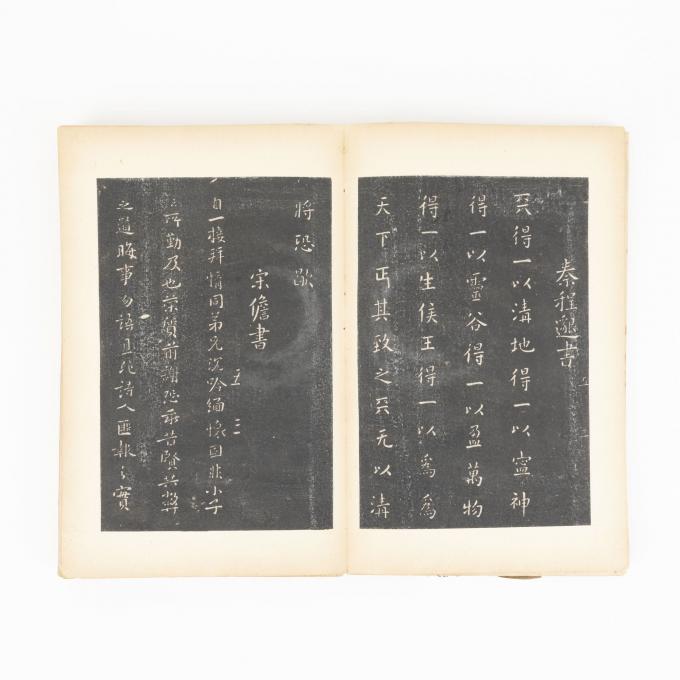 秦程邈書
天得一以清地得一以寧神
得一以靈谷得一以盈萬物
得一以生侯王得一以為為
天下正其致之天无以清
將恐歇
宋儋書
五 三
自一接拜情同弟兄沉吟緬懷固非小子
所勤及也榮賀前謝恐乖昔賢共弊
之道晦事勿語且非詩人匪報之實